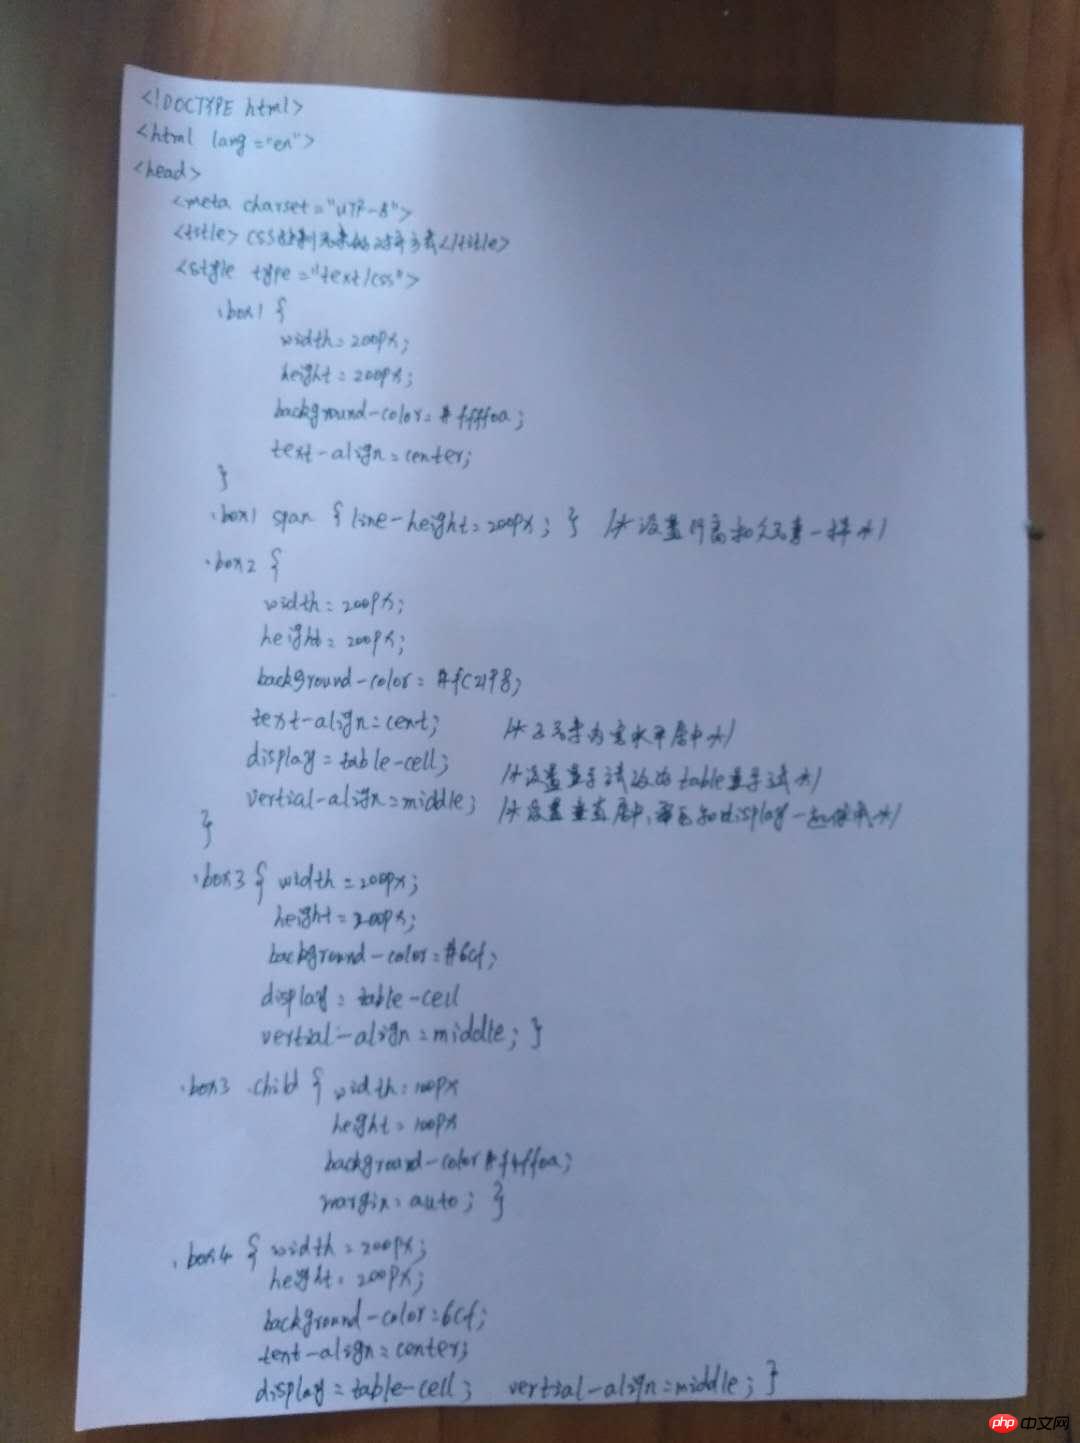 <!DOCTYPE html>
<html lang="en">
<head>
<meta charset="UTF-8">
<title>CSS控制元素的对齐方式</title>
<style type="text/css">
.box1 {
width=200px;
height=200px;
background-color=#ffff0a;
text-align=center;
}
.box1 span {line-height=200px; } /*设置行高和父元素一样*/
.box2 {
width=200px;
height=200px;
background-color=#fc2198;
text-align=cent; /*子元素内容水平居中*/
display=table-cell; /*设置显示方式改为table显示方式*/
vertial-align=middle; /*设置垂直居中,要和display一起使用*/
}
.box3 { width=200px;
height=200px;
background-color=#6cf;
display=table-cell
vertial-align=middle; }
.box3 .child { width=100px
height=100px
background-color#ffff0a;
margin=auto; }
.box4 { width=200px;
height=200px;
background-color=6cf;
text-align=center;
display=table-cell; vertial-align=middle; }
php中文网